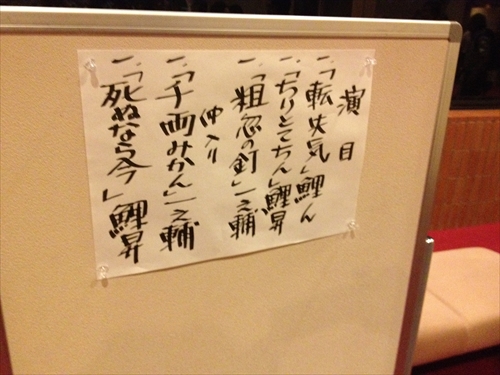 演目
一、「転失気」鯉ん
一、「ちりとてちん」鯉昇
一、「粗忽の釘」一之輔
仲入り
一、「千両みかん」一之輔
一、「死ぬなら今」鯉昇